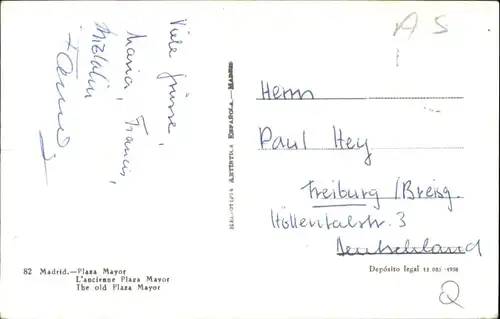 Viele Grüsse,
Maria, Francis,
A S
HELIOTIPIA ARTÍSTICA ESPAÑOLA.—MADRID
Herrn
Paul Hey
Freiburg/Breisg.
Höllentalstr. 3
Deutschland
82 Madrid.—Plaza Mayor
L'ancienne Plaza Mayor
The old Plaza Mayor
Depósito legal 13.085-1958
Q